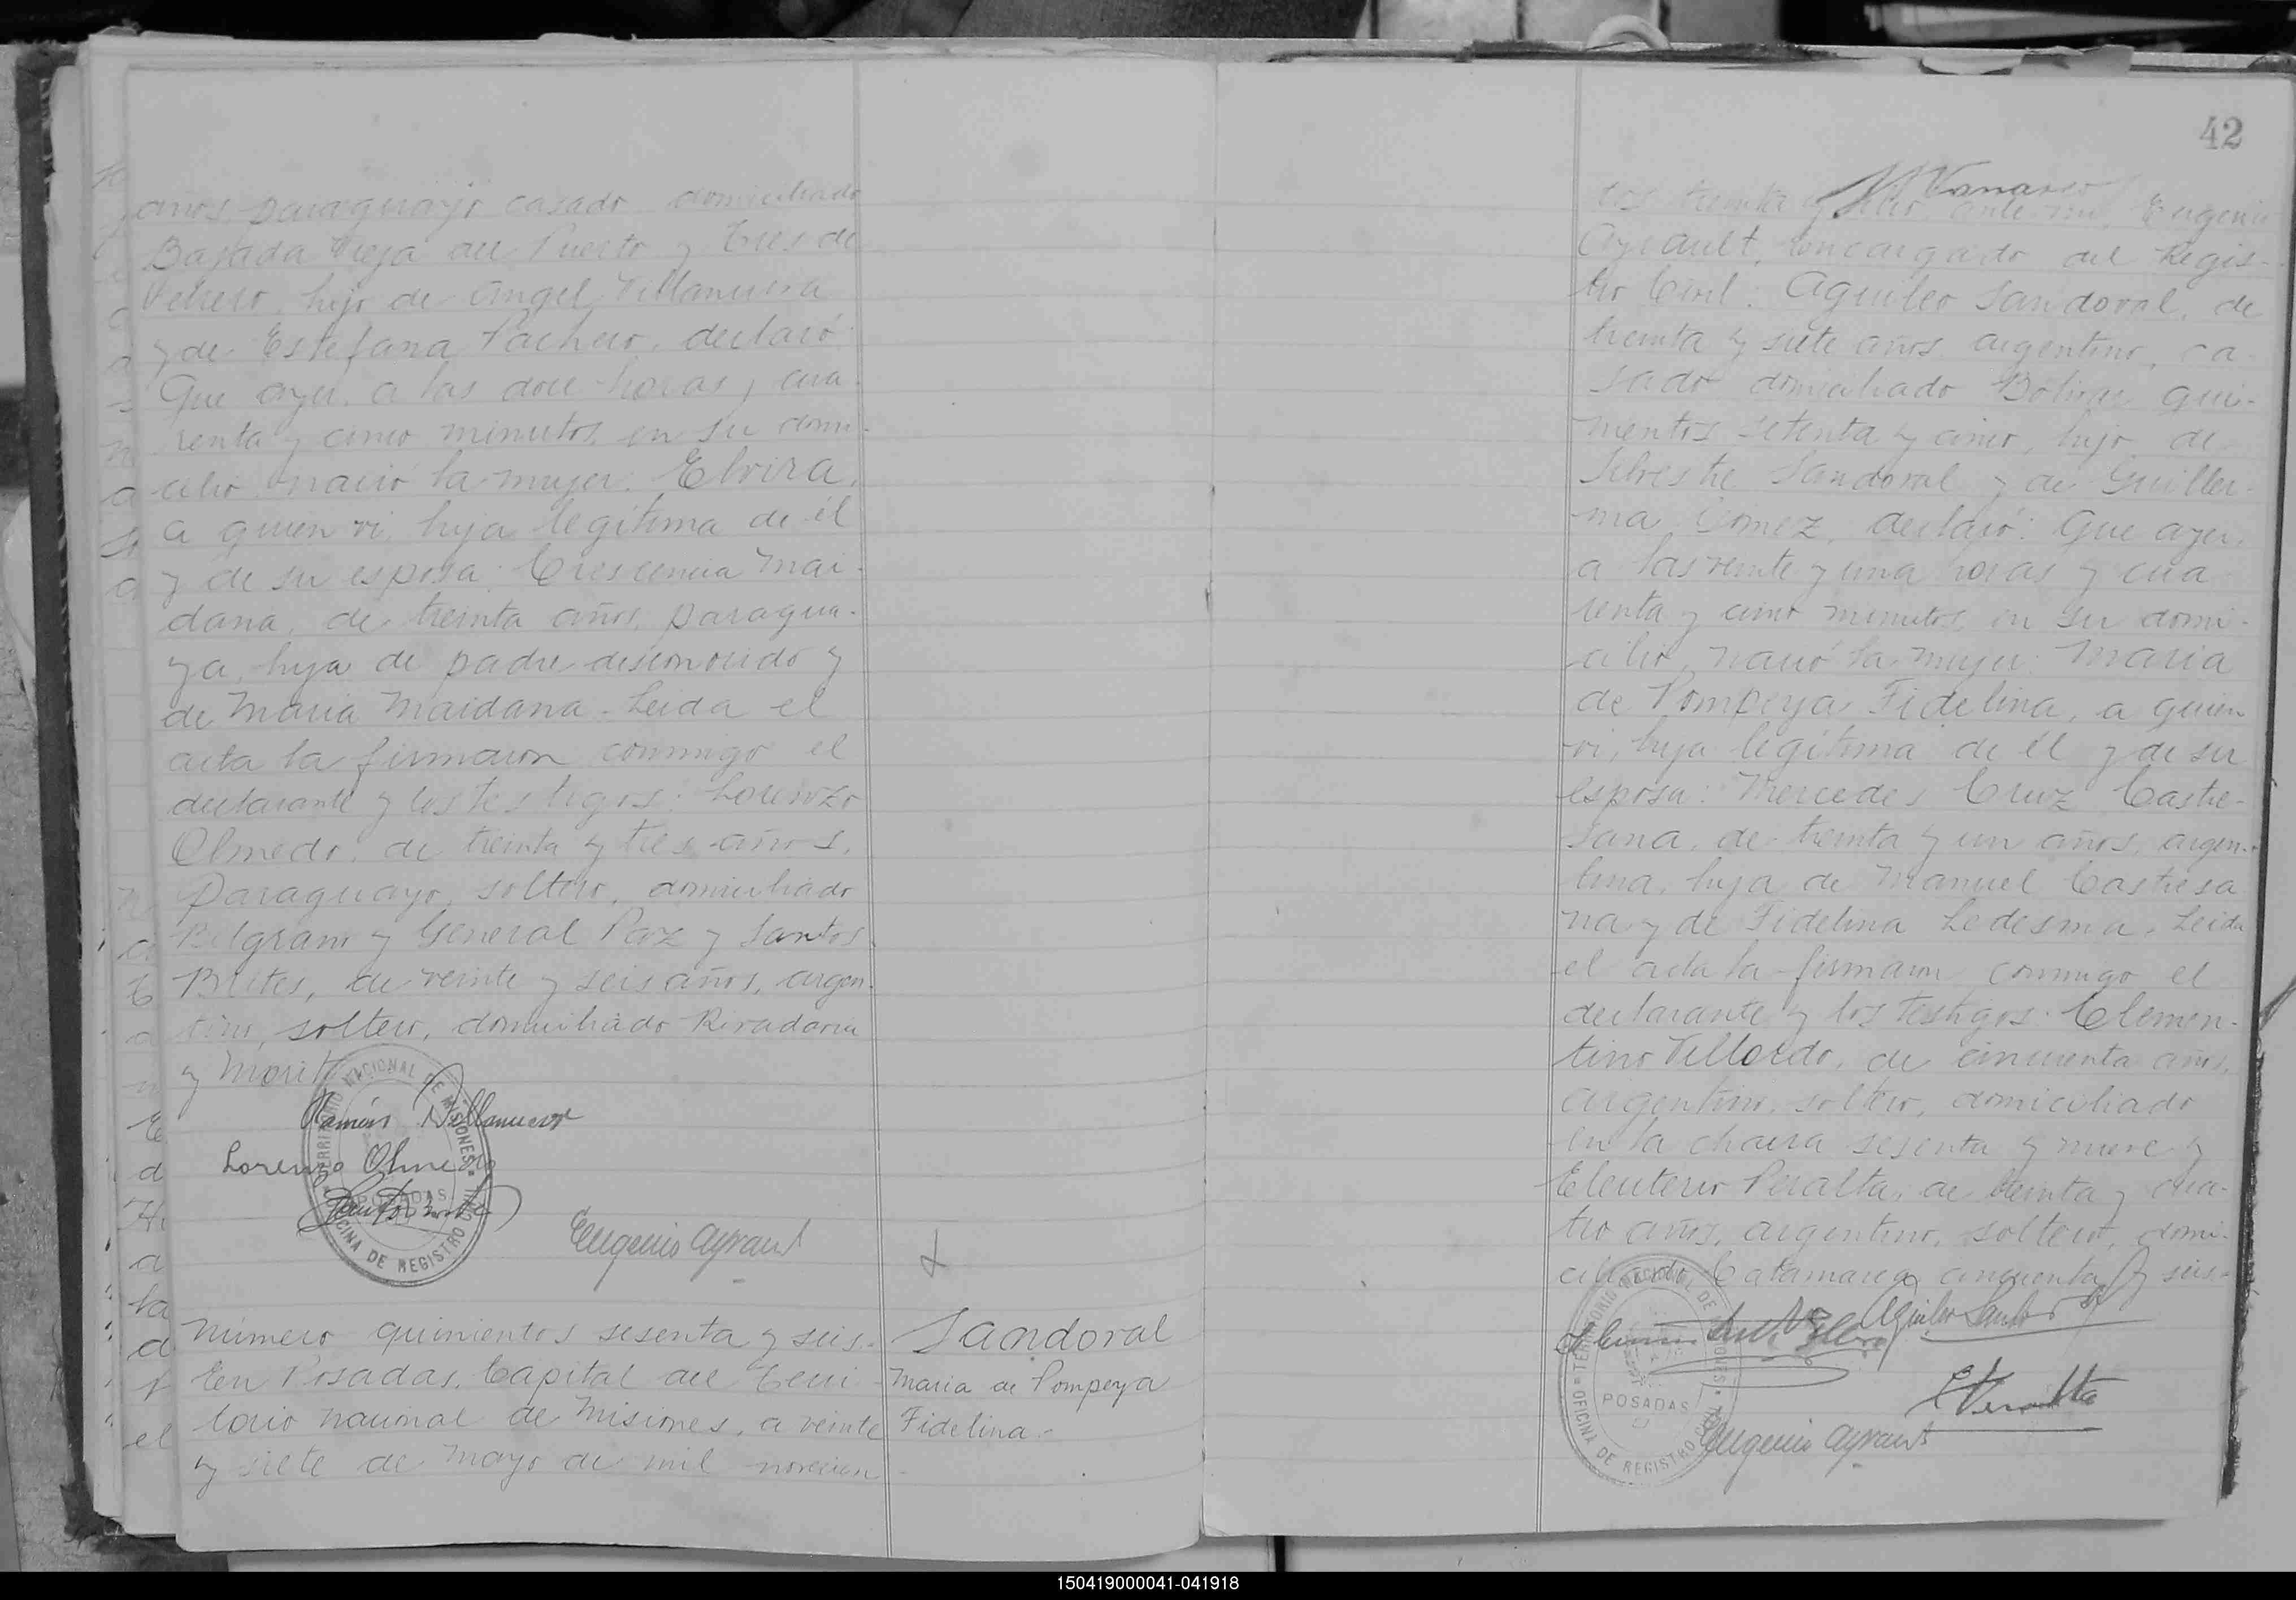 años, paraguayo casado domiciliado
Bajada Vieja del Puerto y Tres de
Febrero, hijo de Angel Villanueva
y de Estefana Pacheco, declaró:
Que ayer, a las doce horas y cua-
renta y cinco minutos, en su domi-
cilio, nació la mujer: Elvira,
a quien vi, hija legítima de él
y de su esposa: Crescencia Mai-
dana, de treinta años, paragua-
ya, hija de padre desconocido y
de Maria Maidana. Leida el
acta la firmaron conmigo el
declarante y los testigos: Lorenzo
Olmedo, de treinta y tres años,
Paraguayo, soltero, domiciliado
Belgrano y General Paz y Santos
Brites, de veinte y seis años, argen-
tino, soltero, domiciliado Rivadavia
y
Ramón Villanueva
Lorenzo Olmedo
Eugenio Ayrault
TERRITORIO NACIONAL DE MISIONES
POSADAS
OFICINA DE REGISTRO CIVIL
Número quinientos sesenta y seis.-
En Posadas, Capital del Terri-
torio nacional de Misiones, a veinte
y siete de Mayo de mil novecien
Sandoval
Maria de Pompeya
Fidelina.-
42
tos treinta y ante mi, Eugenio
Ayrault, Encargado del Regis-
tro Civil: Aguileo Sandoval, de
treinta y siete años argentino, ca-
sado domiciliado Bolivar qui-
nientos setenta y cinco, hijo de
Silvestre Sandoval y de Guiller-
ma Gomez, declaró: Que ayer,
a las veinte y una horas y cua-
renta y cinco minutos, en su domi-
cilio, nació la mujer: Maria
de Pompeya Fidelina, a quien
vi, hija legítima de él y de su
esposa: Mercedes Cruz Castre-
sana, de treinta y un años, argen-
tina, hija de Manuel Castresa
na y de Fidelina Ledesma. Leida
el acta la firmaron conmigo el
declarante y los testigos: Clemen-
tino Velloido, de cincuenta años,
argentino, soltero, domiciliado
en la chacra sesenta y nueve y
Eleuterio Peralta, de treinta y cua-
tro años, argentino, soltero, domi-
ciliado Catamarca cincuenta y seis.-
Aguileo Sandoval
EPeralta
Eugenio Ayrault
TERRITORIO NACIONAL DE MISIONES
POSADAS
OFICINA DE REGISTRO CIVIL
150419000041-041918